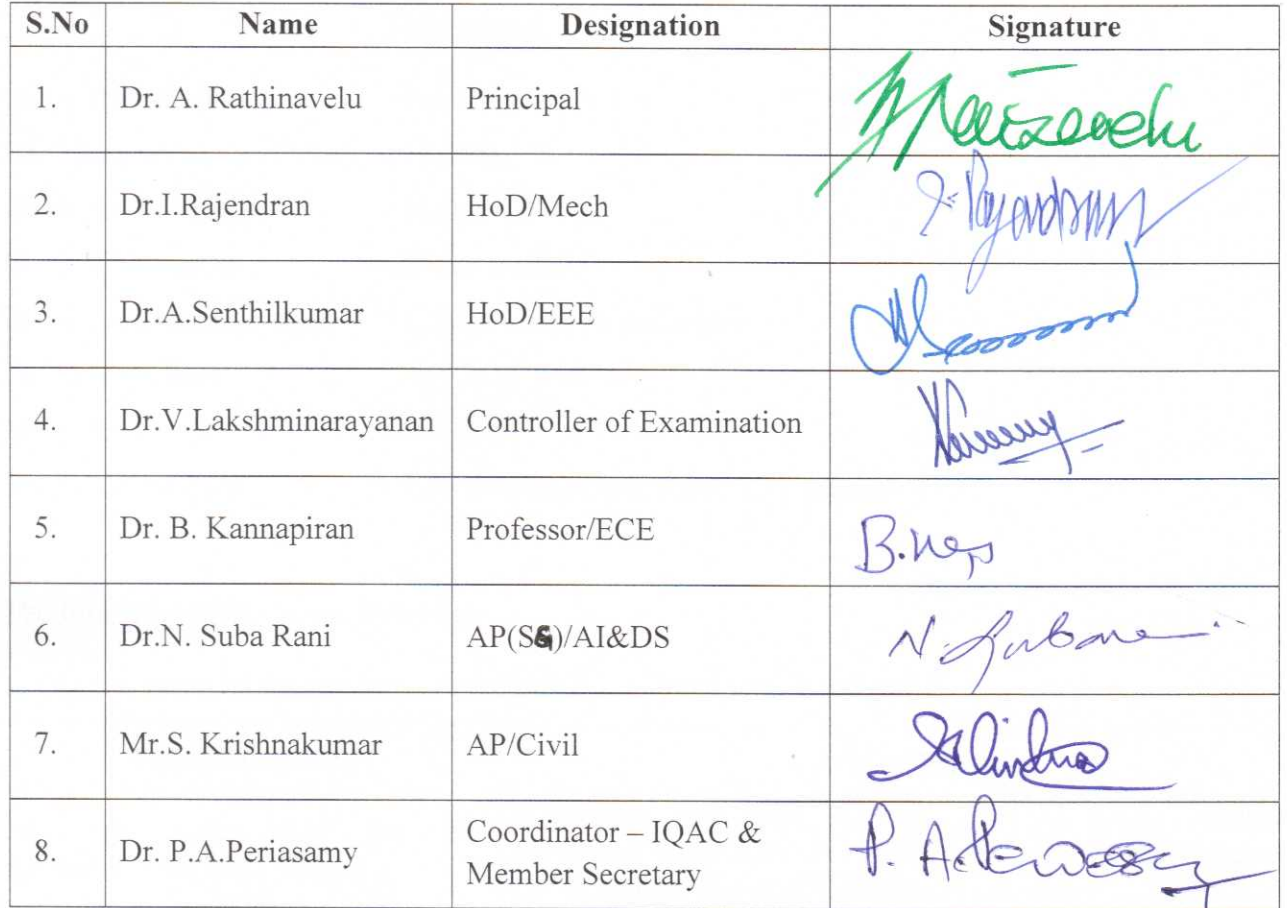 S.No Name Designation Signature
1. Dr. A. Rathinavelu Principal
2. Dr.I.Rajendran HoD/Mech I. Rajendran
3. Dr.A.Senthilkumar HoD/EEE
4. Dr.V.Lakshminarayanan Controller of Examination
5. Dr. B. Kannapiran Professor/ECE
6. Dr.N. Suba Rani AP(SG)/AI&DS
7. Mr.S. Krishnakumar AP/Civil
8. Dr. P.A.Periasamy Coordinator – IQAC &
Member Secretary